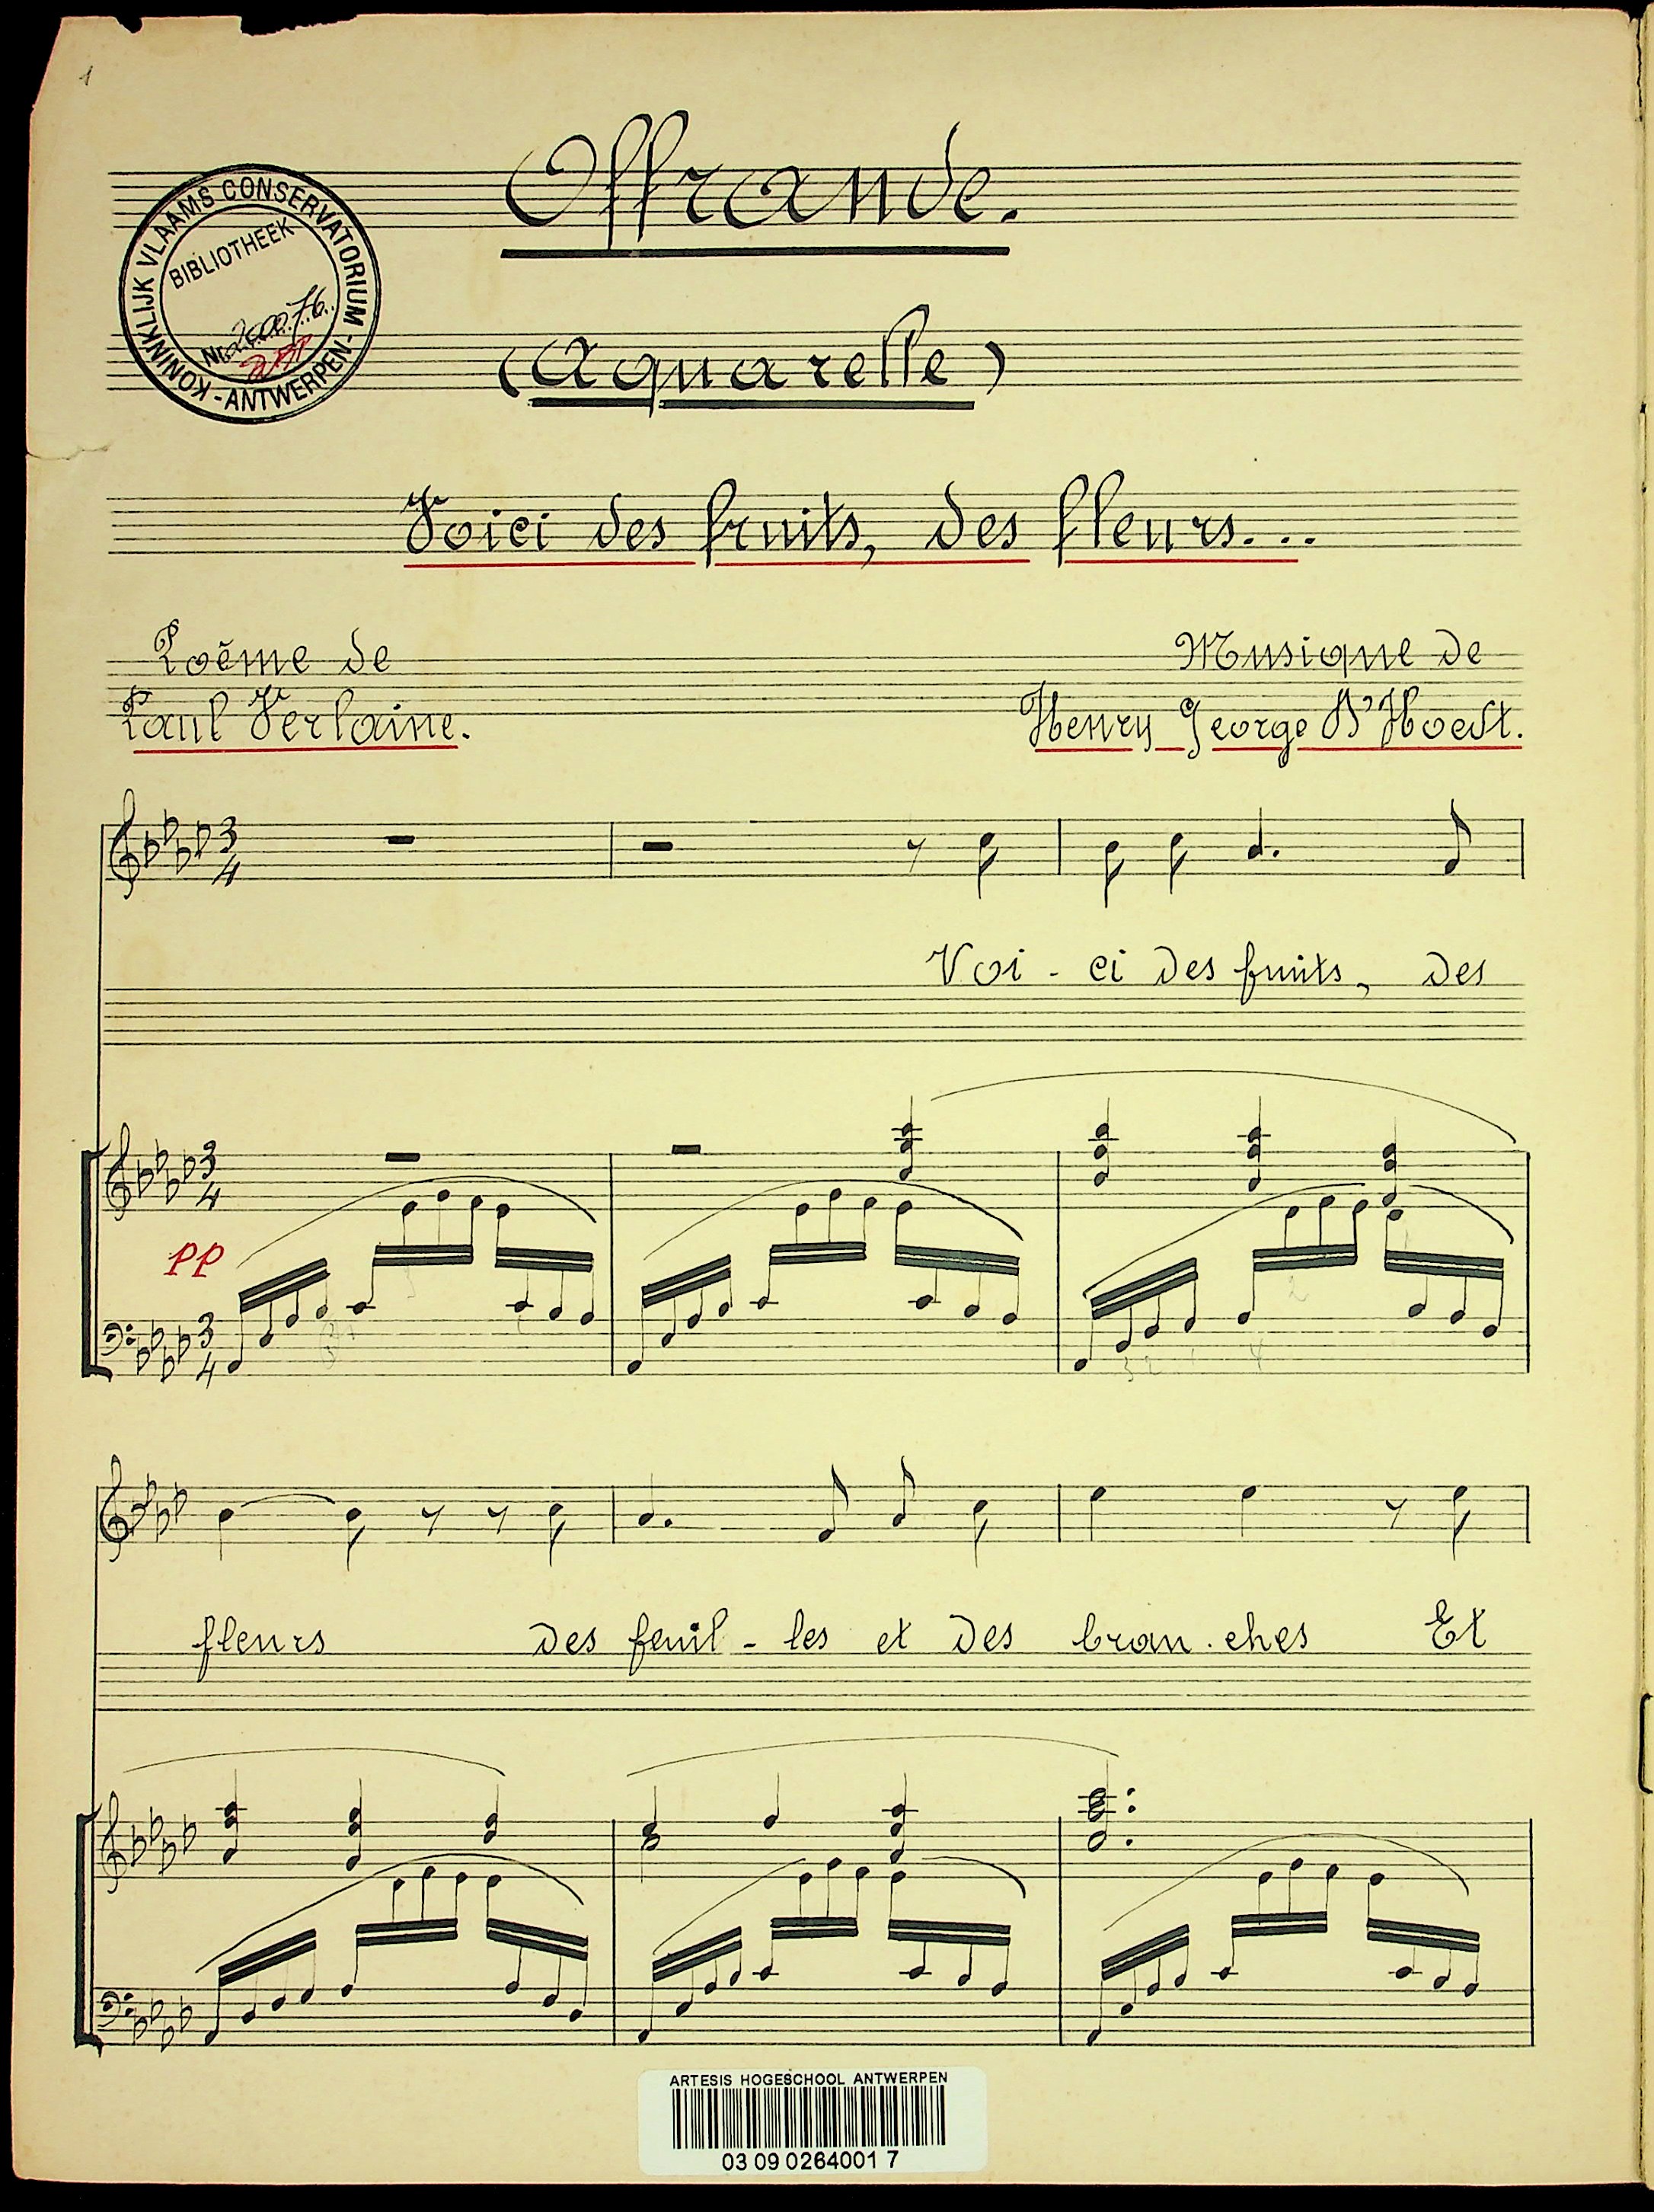 1
Offrande.
KONINKLIJK VLAAMS CONSERVATORIUM - ANTWERPEN -
BIBLIOTHEEK
Nr.
(Aquarelle)
Voici des fruits, des fleurs...
Poème de
Paul Verlaine.
Musique de
Henry George D'Hoedt.
3
4
Voi - ci des fruits, des
3
4
pp
3
4
fleurs des feuil - les et des bran - ches Et
ARTESIS HOGESCHOOL ANTWERPEN
03 09 0264001 7